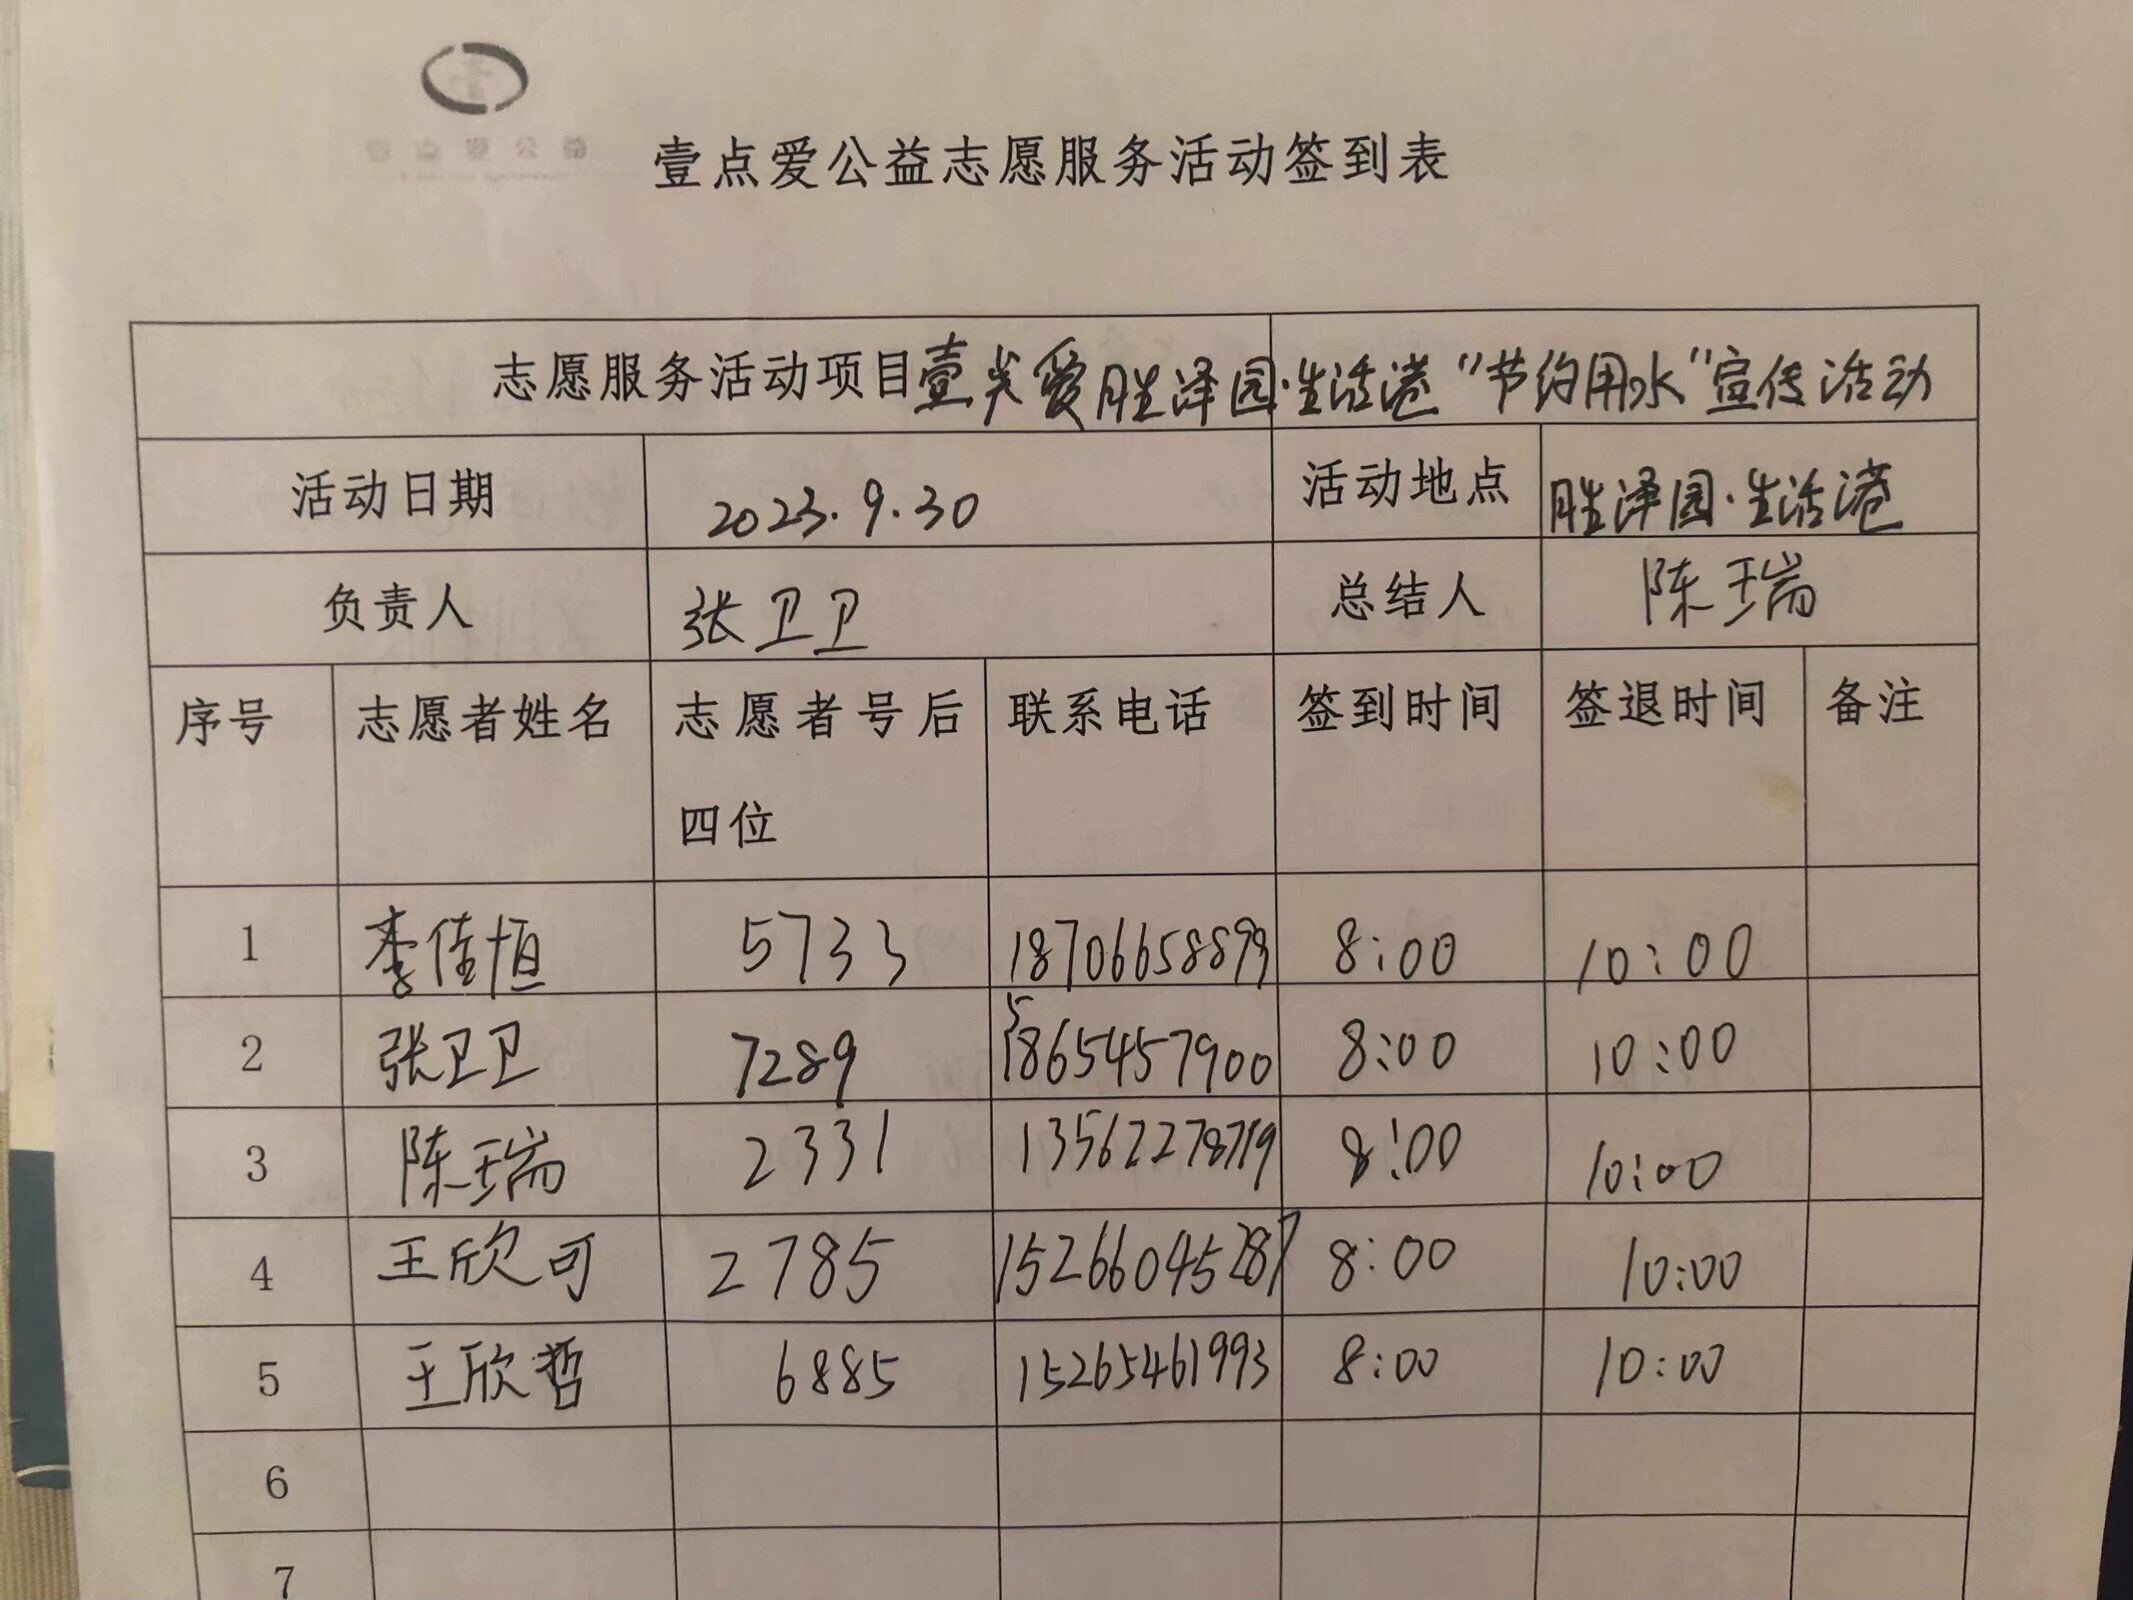 壹点爱公益志愿服务活动签到表
志愿服务活动项目 壹点爱胜泽园·生活港“节约用水”宣传活动
活动日期 2023.9.30 活动地点 胜泽园·生活港
负责人 张卫卫 总结人 陈瑞
序号 志愿者姓名 志愿者号后四位 联系电话 签到时间 签退时间 备注
1 李佳恒 5733 8:00 10:00
2 张卫卫 7289 8:00 10:00
3 陈瑞 2331 8:00 10:00
4 王欣可 2785 15266045287 8:00 10:00
5 王欣哲 6885 15265461993 8:00 10:00
6
7